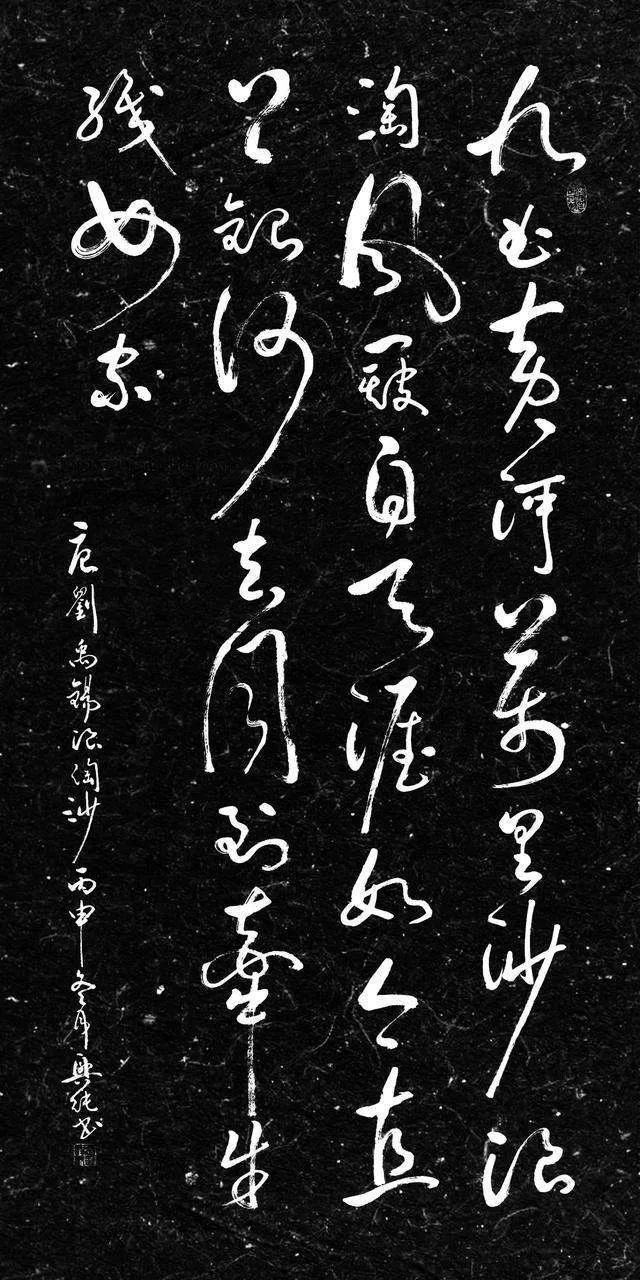 九曲黄河萬里沙浪
淘風簸自天涯如今直
上銀河去同到牽牛
織女家
唐劉禹錫浪淘沙丙申冬月興書